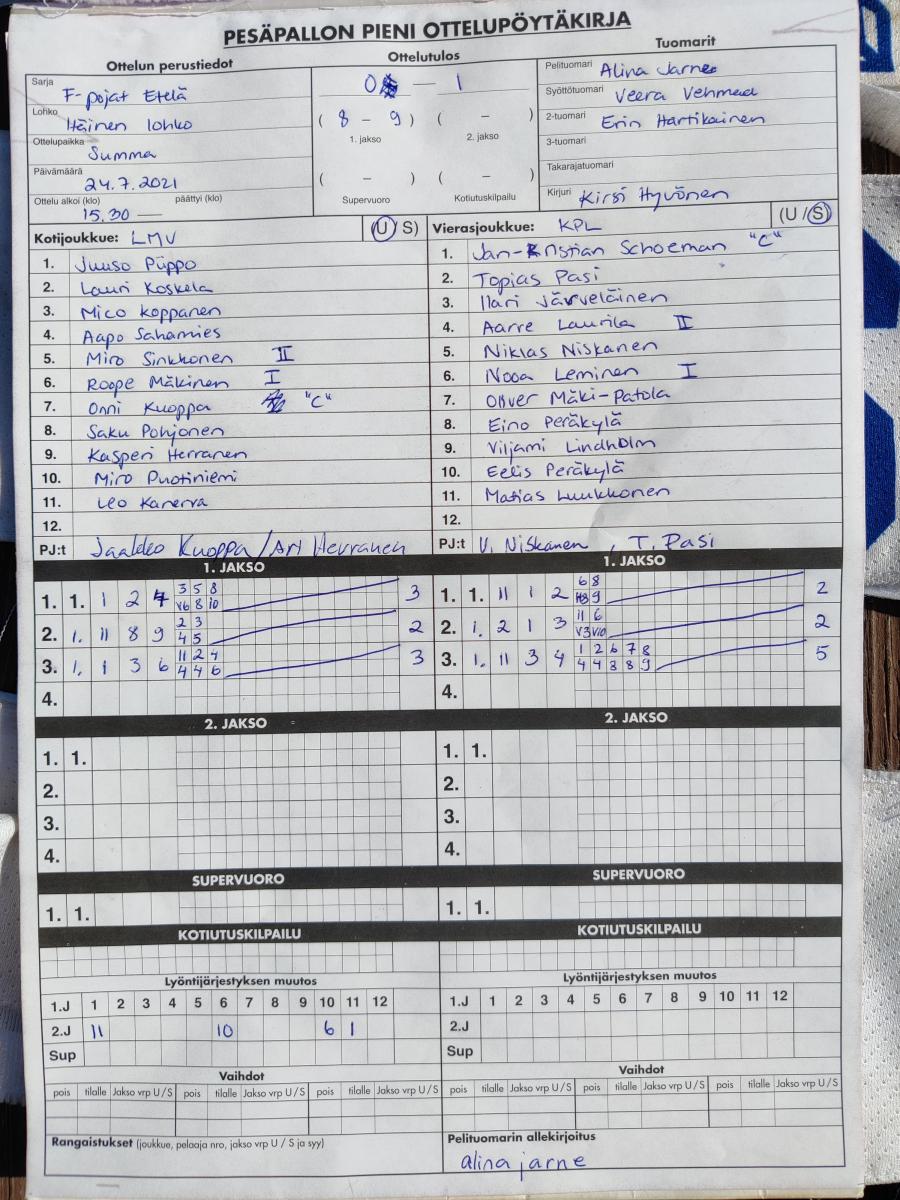 PESÄPALLON PIENI OTTELUPÖYTÄKIRJA
Ottelun perustiedot
Sarja F-pojat Etelä
Lohko Häinen lohko
Ottelupaikka Summa
Päivämäärä 24.7.2021
Ottelu alkoi (klo) 15.30 — päättyi (klo)
Ottelutulos
0 — 1
( 8 – 9 ) ( – )
1. jakso 2. jakso
( – ) ( – )
Supervuoro Kotiutuskilpailu
Tuomarit
Pelituomari Alina Jarne
Syöttötuomari Veera Vehmaa
2-tuomari Erin Hartikainen
3-tuomari
Takarajatuomari
Kirjuri Kirsi Hyvönen
Kotijoukkue: LMV (U/ S)
1. Juuso Piippo
2. Lauri Koskela
3. Mico Koppanen
4. Aapo Sahamies
5. Miro Sinkkonen II
6. Roope Mäkinen I
7. Onni Kuoppa "C"
8. Saku Pohjonen
9. Kasperi Herranen
10. Miro Puotiniemi
11. Leo Kanerva
12.
PJ:t Jaakko Kuoppa / Ari Herranen
Vierasjoukkue: KPL (U / S)
1. Jan-Kristian Schoeman "C"
2. Topias Pasi
3. Ilari Järveläinen
4. Aarre Laurila II
5. Niklas Niskanen
6. Nooa Leminen I
7. Oliver Mäki-Patola
8. Eino Peräkylä
9. Viljami Lindholm
10. Eelis Peräkylä
11. Matias Luukkonen
12.
PJ:t V. Niskanen , T. Pasi
1. JAKSO
1. 1. 1 2 4 3 5 8 3
V6 8 10
2. 1. 11 8 9 2 3 2
4 5
3. 1. 1 3 6 11 2 4 3
4 4 6
4.
1. JAKSO
1. 1. 11 1 2 6 8 2
9
2. 1. 2 1 3 11 6 2
V3 V10
3. 1. 11 3 4 1 2 6 7 8 5
4 4 8 8 9
4.
2. JAKSO
1. 1.
2.
3.
4.
2. JAKSO
1. 1.
2.
3.
4.
SUPERVUORO
1. 1.
SUPERVUORO
1. 1.
KOTIUTUSKILPAILU
KOTIUTUSKILPAILU
Lyöntijärjestyksen muutos
1.J 1 2 3 4 5 6 7 8 9 10 11 12
2.J 11 10 6 1
Sup
Lyöntijärjestyksen muutos
1.J 1 2 3 4 5 6 7 8 9 10 11 12
2.J
Sup
Vaihdot
pois tilalle Jakso vrp U / S pois tilalle Jakso vrp U / S pois tilalle Jakso vrp U / S
Vaihdot
pois tilalle Jakso vrp U / S pois tilalle Jakso vrp U / S pois tilalle Jakso vrp U / S
Rangaistukset (joukkue, pelaaja nro, jakso vrp U / S ja syy)
Pelituomarin allekirjoitus
alina jarne